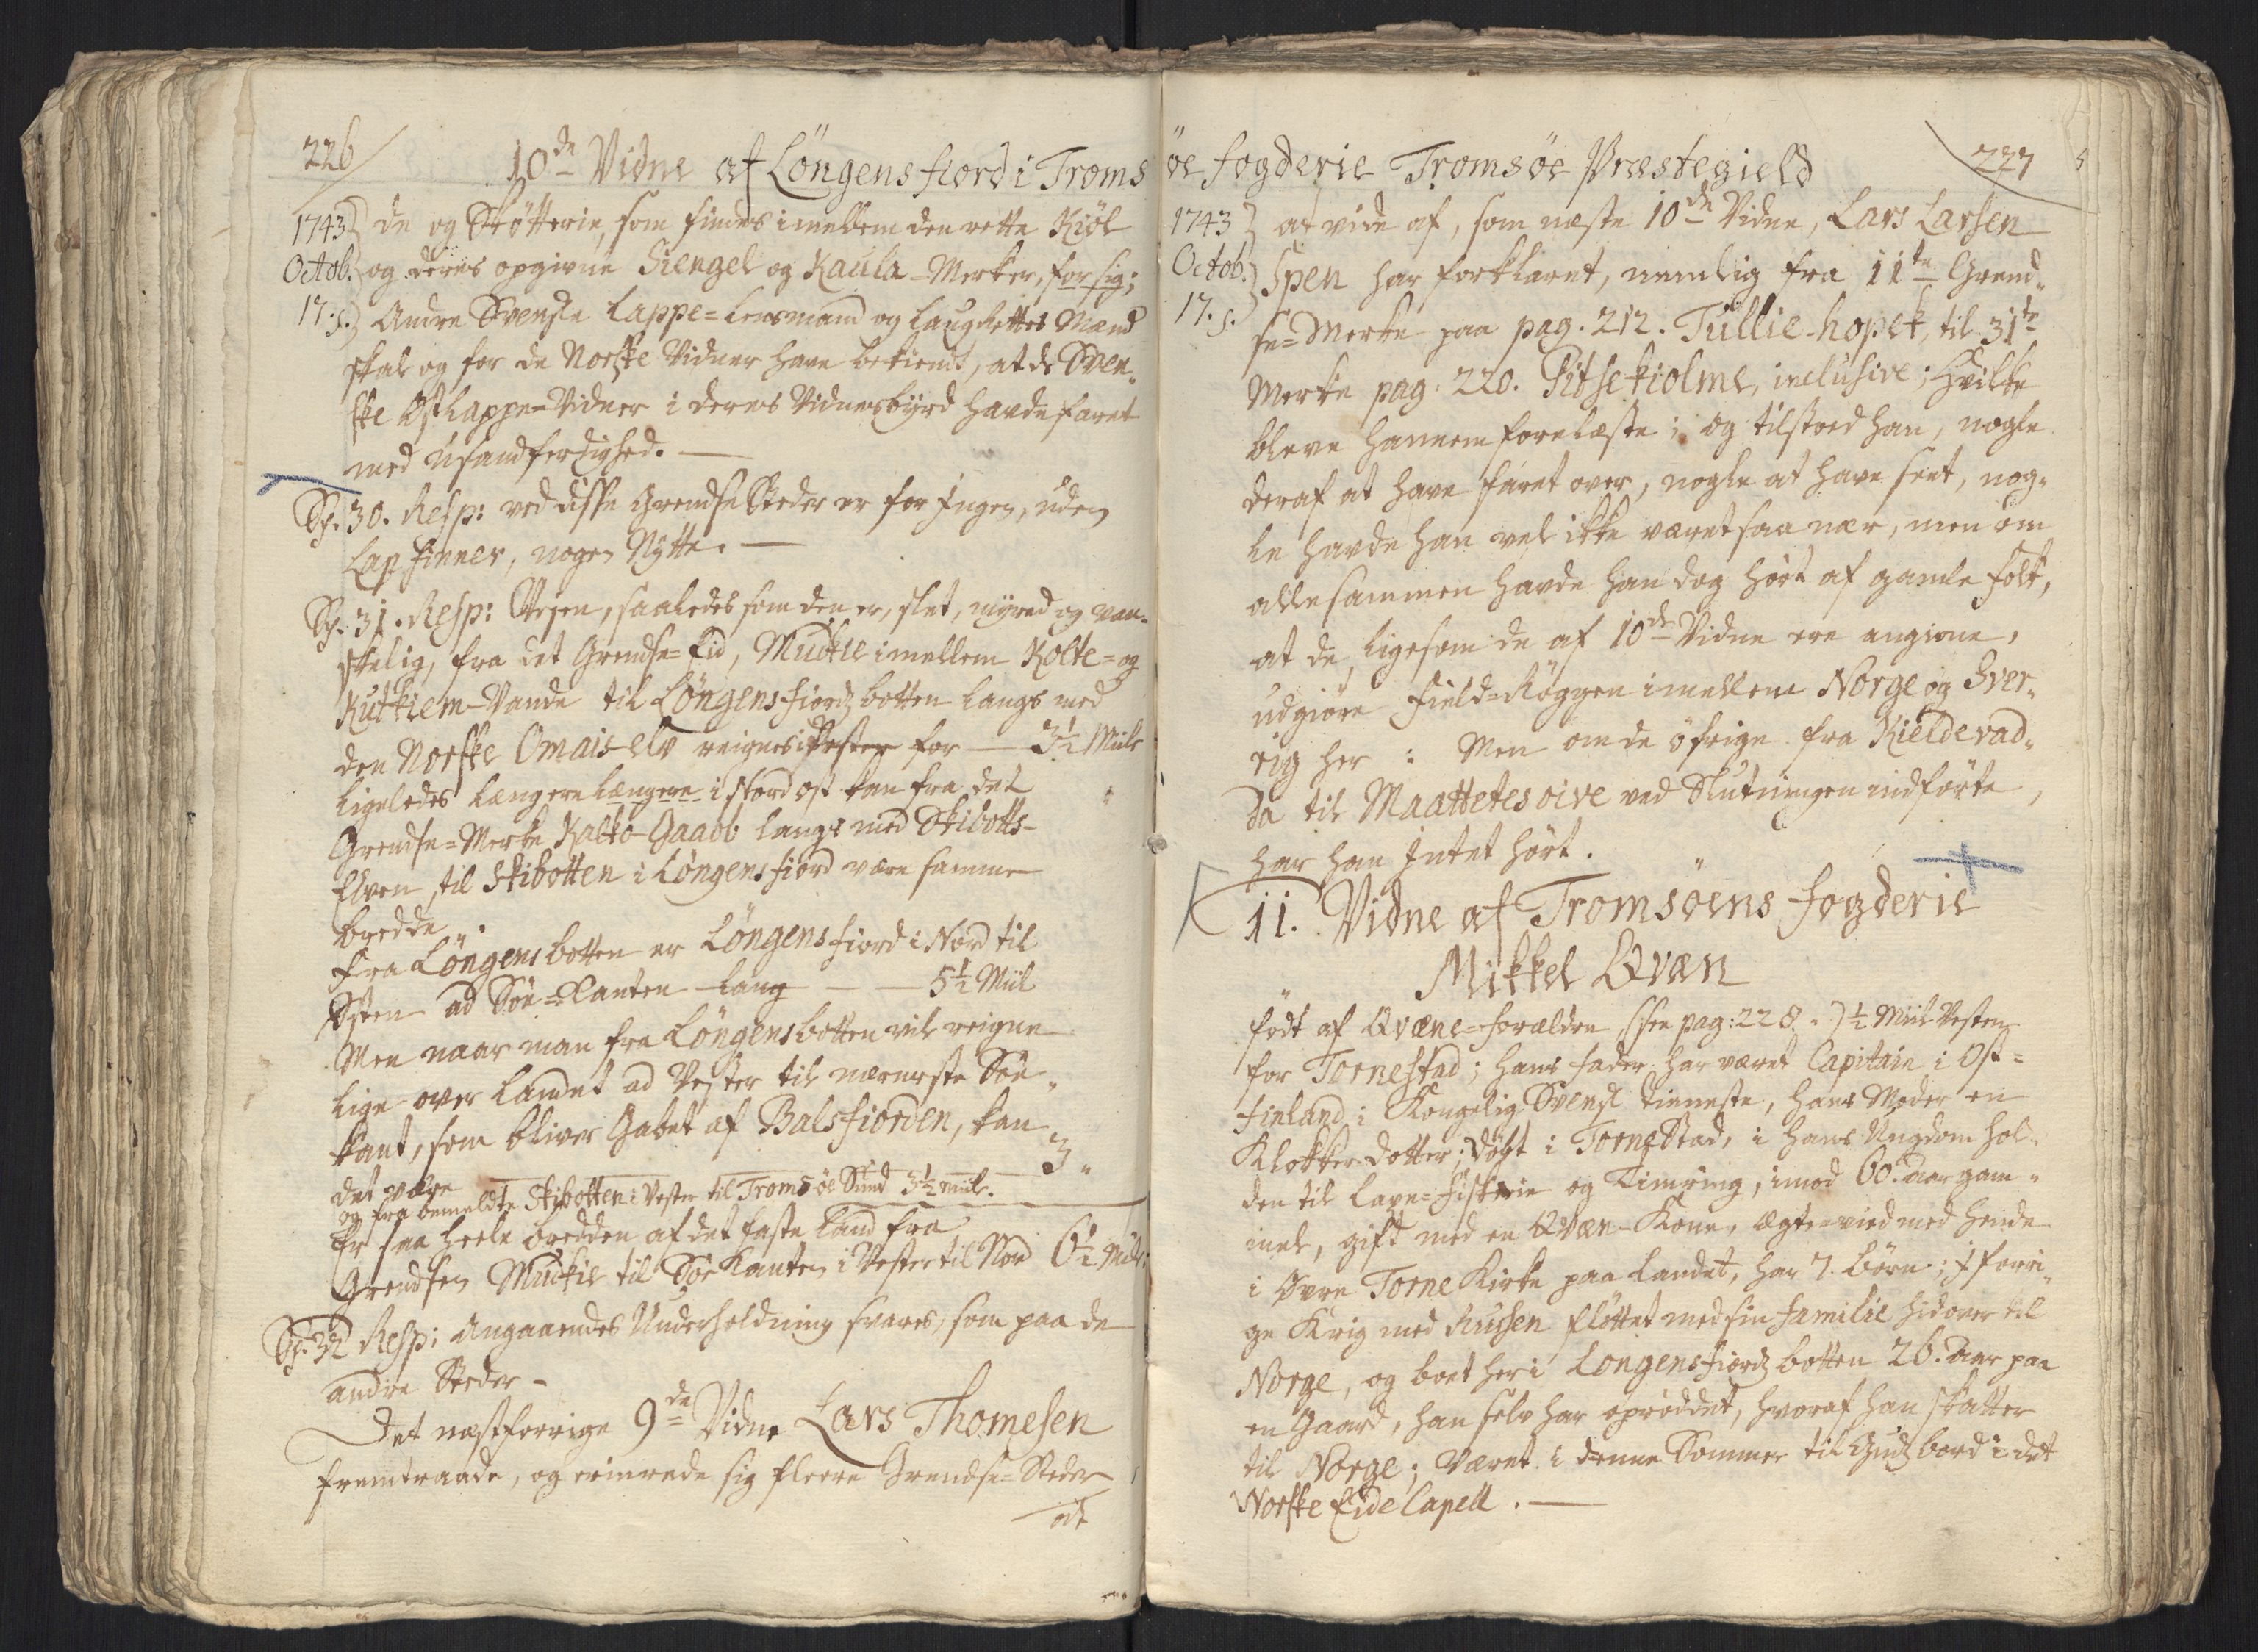 226
10de Vidne af Löngensfiord i Troms
1743 de og Skötterie, som findes imellem den rette Kiöl
Octob. og deres opgivne Siengel og Kaula-Merker, for sig;
17. s. Andre Svenske Lappe-Lensmand og LaugRettes Mænd
skal og for de Norske Vidner have bekiendt, at de Sven-
ske Ost Lappe-Vidner i deres Vidnesbyrd havde faret
med Usandferdighed.
Sp. 30. Resp: ved disse Grendse Steder er for Ingen, uden
Lap Finner, nogen Nytte.
Sp. 31. Resp: Veyen, saaledes som den er, slet, myred og van-
skelig, fra det Grendse-Eid, Muckie imellem Kolte- og
Kutkiem-Vande til Löngensfiords botten langs med
den Norske Omais-elv reignes i Vester for 3½ Miile
Ligeledes længere længere i Nord ost kan fra det
Grendse-Merke Kalko-Gaabb langs med Skibotts-
Elven, til Skibotten i Löngensfiord være samme
bredde "
Fra Löngens botten er Löngensfiord i Nord til
Osten ad Söe-Kanten lang 5½ Miil
Men naar man fra Löngensbotten vil reigne
lige over Landet ad Vester til nærmeste Söe-
kant, som bliver Gabet af Balsfiorden, kan
det være 3 "
og fra bemeldte Skibotten i Vester til Tromsöe Sund 3½ miile.
Er saa heele bredden af det faste Land fra
Grendsen Muckie til Söe Kanten i Vester til Nord 6½ Miile:
Sp. 32 Resp: Angaaendes Underholdning svares, som paa de
andre Steder -
Det næstforrige 9de Vidne Lars Thomesen
fremtraade, og erinrede sig fleere Grendse-Steder
at
öe fogderie Tromsöe Præstegield
227
1743 at vide af, som næste 10de Vidne, Lars Larsen
Octob. Spen har forklaret, nemlig fra 11te Grend-
17. s. se-Merke paa pag. 212. Tullie-hopek, til 31te
Merke pag. 220. Pitsekiolme, inclusive; Hvilke
bleve hannem forelæste; og tilstoed han, nogle
deraf at have faret over, nogle at have seet, nog-
le havde han vel ikke været saa nær, men om
allesammen havde han dog hört af gamle Folk,
at de, ligesom de af 10de Vidne ere angivne,
udgiöre Field-Röggen imellem Norge og Sver-
rig her : Men om de öfrige fra Kieldevad-
da til Maattetesoive ved Slutningen indförte,
har han Intet hört.
11. Vidne af Tromsöens fogderie
Mikkel Qvæn
födt af Qvæne-forældre (see pag: 228.) ½ Miil Vesten
for Tornestad; hans Fader har været Capitain i Ost-
finland i Kongelig Svensk tieneste, hans Moder en
Klokker Dotter; Döbt i Torne Stad, i hans Ungdom hol-
den til Laxe-fiskerie og Timring, imod 60. Aar gam-
mel, gift med en Qvæn-Kone, ægtevied med hende
i Övre Torne Kirke paa Landet, har 7. Börn; I forri-
ge Krig med Russen flöttet med sin Familie hidover til
Norge, og boet her i Longensfiords botten 26. Aar paa
en Gaard, han selv har oprøddet, hvoraf han skatter
til Norge; Været i denne Sommer til Guds bord i det
Norske Eide Capell.